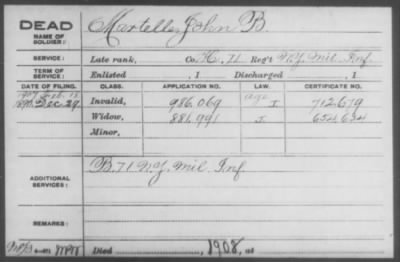 DEAD Martelle, John B.
NAME OF SOLDIER:
SERVICE: Late rank, Co. H, 71 Reg't N.Y. Mil. Inf.
TERM OF SERVICE: Enlisted , 1 Discharged , 1
DATE OF FILING. CLASS. APPLICATION NO. LAW. CERTIFICATE NO.
Invalid, 986,069 I 712,679
Dec. 29 Widow, 881,991 I 654,634
Minor,
ADDITIONAL SERVICES: B, 71 N.Y. Mil. Inf.
REMARKS:
Died , 1908, at